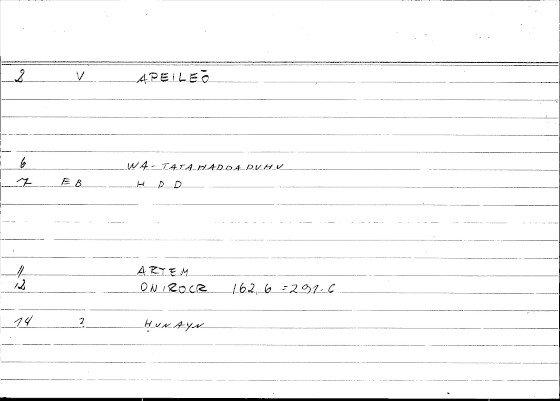 2 V APEILEŌ
6 WA-TATAHADDADUHU
7 EB HDD
11 ARTEM
12 ONIROCR 162,6 = 291-6
14 2 ḤUNAYN